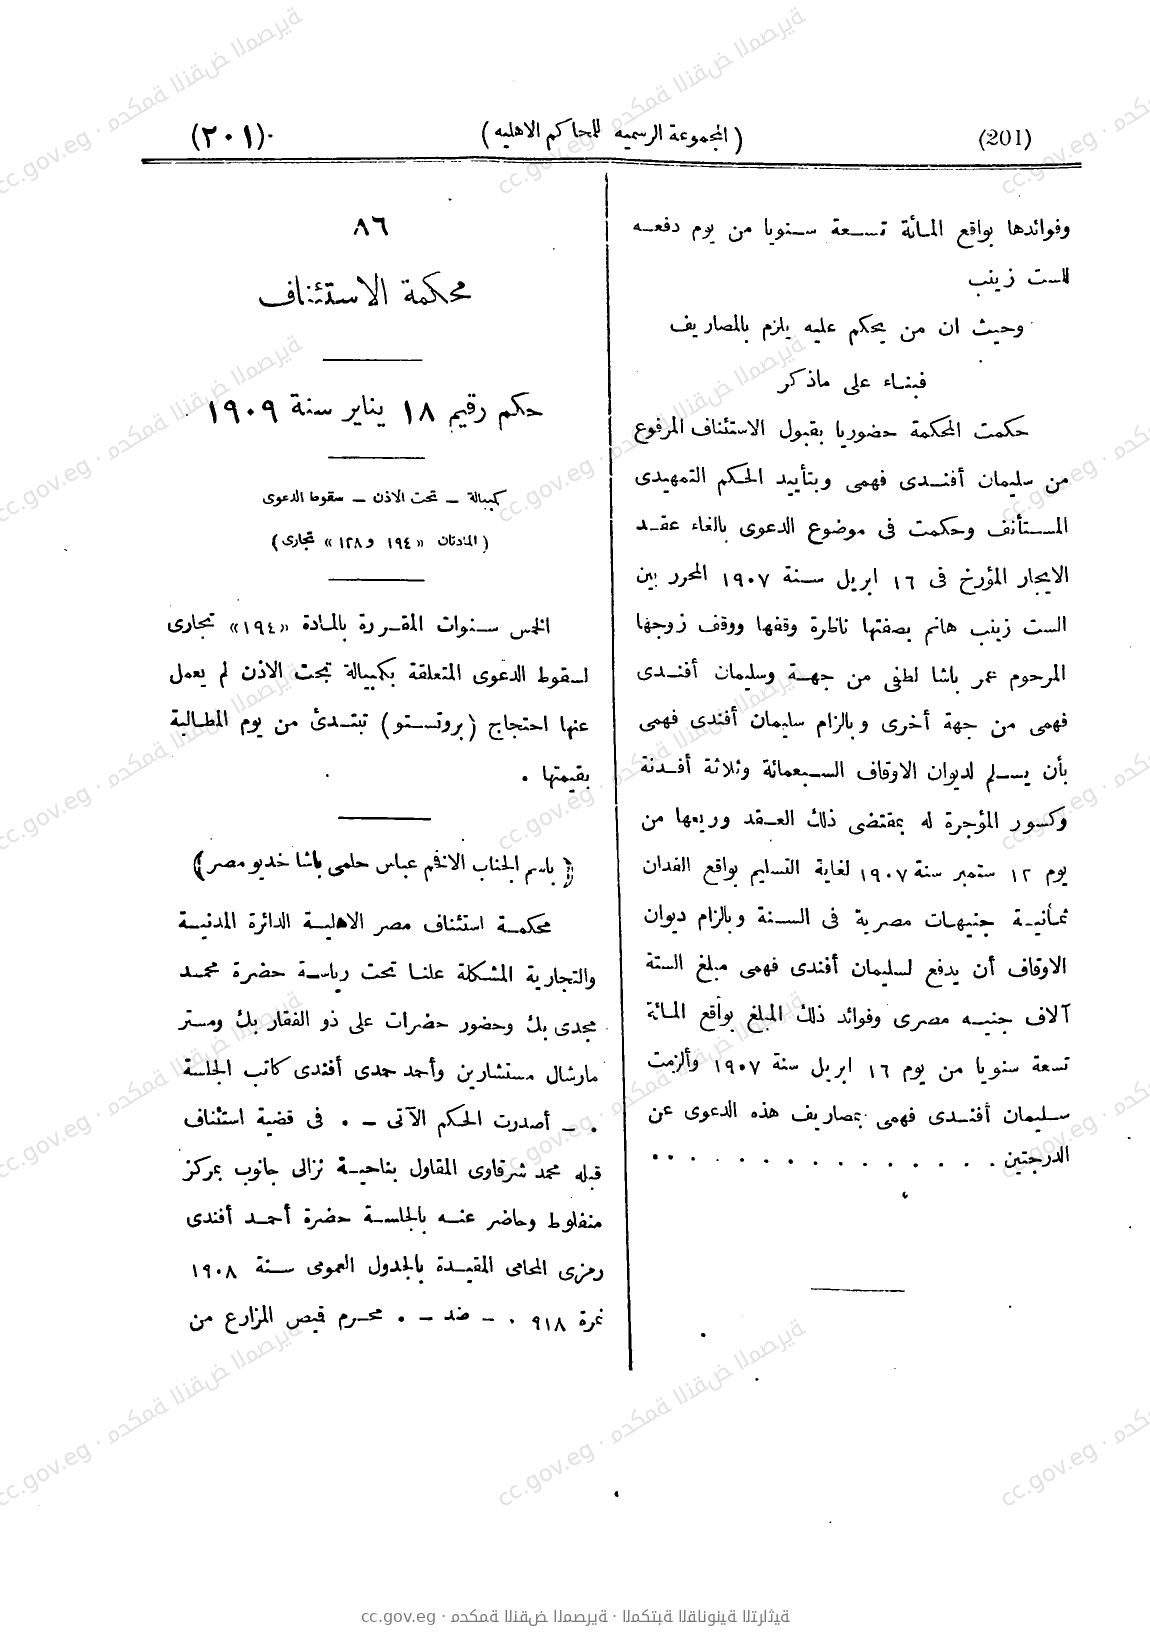 (201) (المجموعة الرسميه للمحاكم الاهليه) (٢٠١)
وفوائدها بواقع المائة تسعة سنويا من يوم دفعه
للست زينب
وحيث ان من يحكم عليه يلزم بالمصاريف
فبناء على ماذكر
حكمت المحكمة حضوريا بقبول الاستئناف المرفوع
من سليمان أفندى فهمى وبتأييد الحكم التمهيدى
المستأنف وحكمت فى موضوع الدعوى بالغاء عقد
الايجار المؤرخ فى ١٦ ابريل سنة ١٩٠٧ المحرر بين
الست زينب هانم بصفتها ناظرة وقفها ووقف زوجها
المرحوم عمر باشا لطفى من جهة وسليمان أفندى
فهمى من جهة أخرى وبالزام سليمان أفندى فهمى
بأن يسلم لديوان الاوقاف السبعمائة وثلاثة أفدنة
وكسور المؤجرة له بمقتضى ذلك العقد وريعها من
يوم ١٢ ستمبر سنة ١٩٠٧ لغاية التسليم بواقع الفدان
ثمانية جنيهات مصرية فى السنة وبالزام ديوان
الاوقاف أن يدفع لسليمان أفندى فهمى مبلغ الستة
آلاف جنيه مصرى وفوائد ذلك المبلغ بواقع المائة
تسعة سنويا من يوم ١٦ ابريل سنة ١٩٠٧ وألزمت
سليمان أفندى فهمى بمصاريف هذه الدعوى عن
الدرجتين . . . . . . . . . . . . . . .
٨٦
محكمة الاستئناف
حكم رقيم ١٨ يناير سنة ١٩٠٩
كمبيالة – تحت الاذن – سقوط الدعوى
(المادتان «١٩٤ و١٢٨» تجارى)
الخمس سنوات المقررة بالمادة «١٩٤» تجارى
لسقوط الدعوى المتعلقة بكمبيالة تحت الاذن لم يعمل
عنها احتجاج (بروتستو) تبتدئ من يوم المطالبة
بقيمتها .
(باسم الجناب الافخم عباس حلمى باشا خديو مصر)
محكمة استئناف مصر الاهلية الدائرة المدنية
والتجارية المشكلة علنا تحت رياسة حضرة محمد
مجدى بك وحضور حضرات على ذو الفقار بك ومستر
مارشال مستشارين وأحمد حمدى أفندى كاتب الجلسة
. – أصدرت الحكم الآتى – . فى قضية استئناف
قبله محمد شرقاوى المقاول بناحية نزالى جانوب بمركز
منفلوط وحاضر عنه بالجلسة حضرة أحمد أفندى
رمزى المحامى المقيدة بالجدول العمومى سنة ١٩٠٨
نمرة ٩١٨ . – ضد – . محرم قبيص المزارع من
cc.gov.eg · محكمة النقض المصرية · المكتبة القانونية التراثية